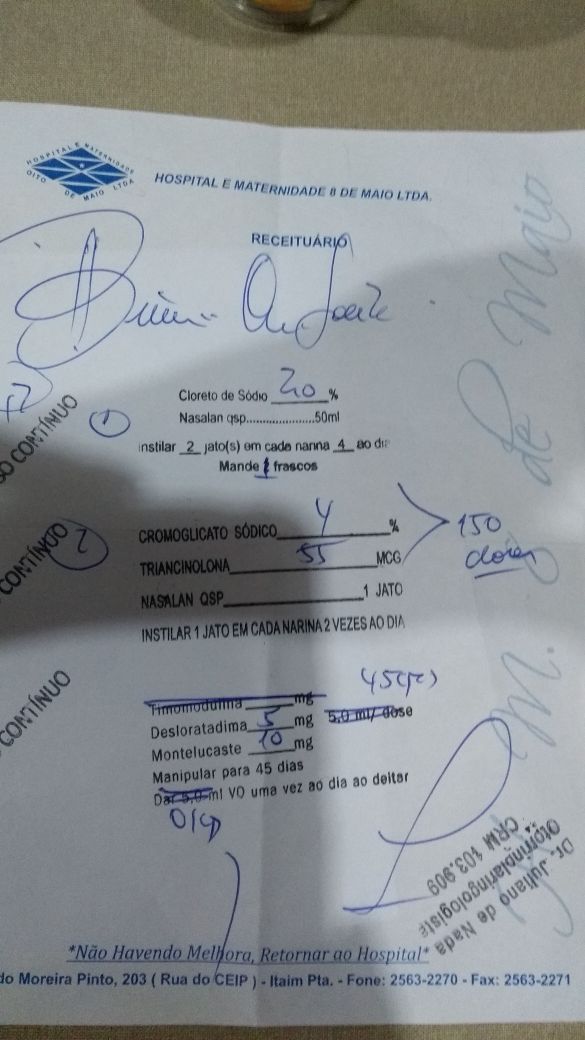 HOSPITAL E MATERNIDADE
OITO DE MAIO LTDA
HOSPITAL E MATERNIDADE 8 DE MAIO LTDA.
RECEITUÁRIO
USO CONTÍNUO
1
Cloreto de Sódio 20 %
Nasalan qsp......................50ml
instilar 2 jato(s) em cada narina 4 ao dia
Mande 1 frascos
CONTÍNUO
2
CROMOGLICATO SÓDICO 4 %
TRIANCINOLONA 55 MCG
150 doses
NASALAN QSP 1 JATO
INSTILAR 1 JATO EM CADA NARINA 2 VEZES AO DIA
CONTÍNUO
Timomodulina mg
Desloratadima 5 mg 5,0 ml/ dose
Montelucaste 10 mg
Manipular para 45 dias
Dar 5,0 ml VO uma vez ao dia ao deitar
H. M. 8 de Maio
Dr. Juliano de Nada
Otorrinolaringologista
CRM 103.909
*Não Havendo Melhora, Retornar ao Hospital*
do Moreira Pinto, 203 ( Rua do CEIP ) - Itaim Pta. - Fone: 2563-2270 - Fax: 2563-2271